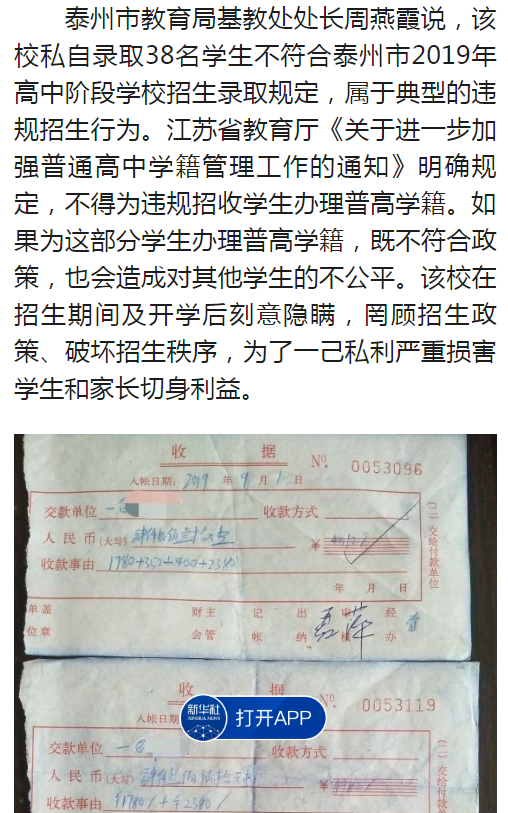 泰州市教育局基教处处长周燕霞说，该
校私自录取38名学生不符合泰州市2019年
高中阶段学校招生录取规定，属于典型的违
规招生行为。江苏省教育厅《关于进一步加
强普通高中学籍管理工作的通知》明确规
定，不得为违规招收学生办理普高学籍。如
果为这部分学生办理普高学籍，既不符合政
策，也会造成对其他学生的不公平。该校在
招生期间及开学后刻意隐瞒，罔顾招生政
策、破坏招生秩序，为了一己私利严重损害
学生和家长切身利益。
收 据
№ 0053096
入帐日期: 2019 年 9 月 1 日
交款单位 一 收款方式
人民币(大写) ¥
收款事由 1780+350+400+2380
年 月 日
(二)交给付款单位
单盖 财主 记 出 审 经
位章 会管 帐 纳 核 办
收 据
№ 0053119
入帐日期
新华社
XINHUA NEWS
打开APP
交款单位 一 收款方式
人民币(大写) ¥
收款事由 1780 + 2380
(二)交给付款单